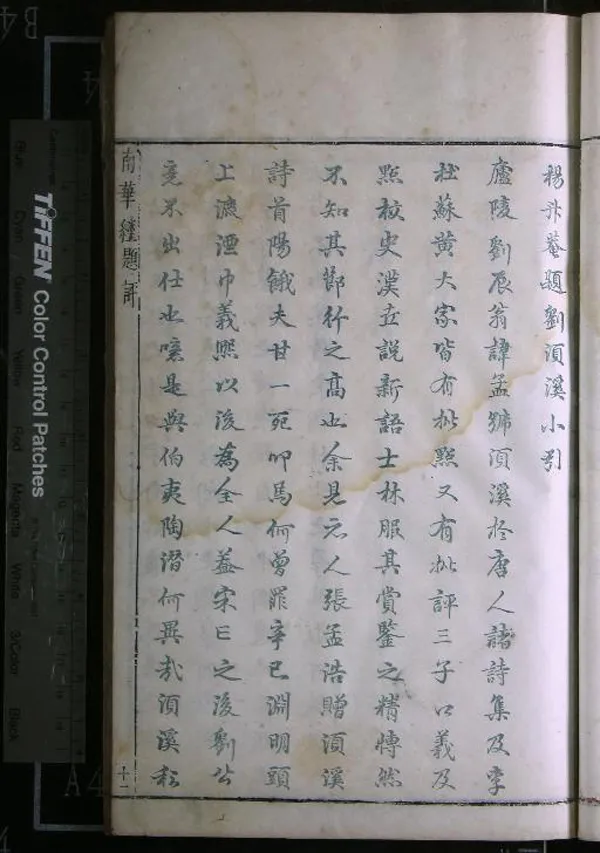 楊升菴題劉湏溪小引
廬陵劉辰翁諱孟號湏溪於唐人諸詩集及李
杜蘇黃大家皆有批點又有批評三子口義及
點校史漢世說新語士林服其賞鑒之精愽然
不知其節行之高也余見元人張孟浩贈湏溪
詩首陽餓夫甘一死叩馬何曾罪辛巳淵明頭
上漉酒巾義熈以後為全人葢宋亡之後劉公
竟不出仕也噫是與伯夷陶潛何異哉湏溪
南華經題評
十一
TIFFEN Color Control Patches
Blue
Cyan
Green
Yellow
Red
Magenta
White
3/Color
Black
B4
A4